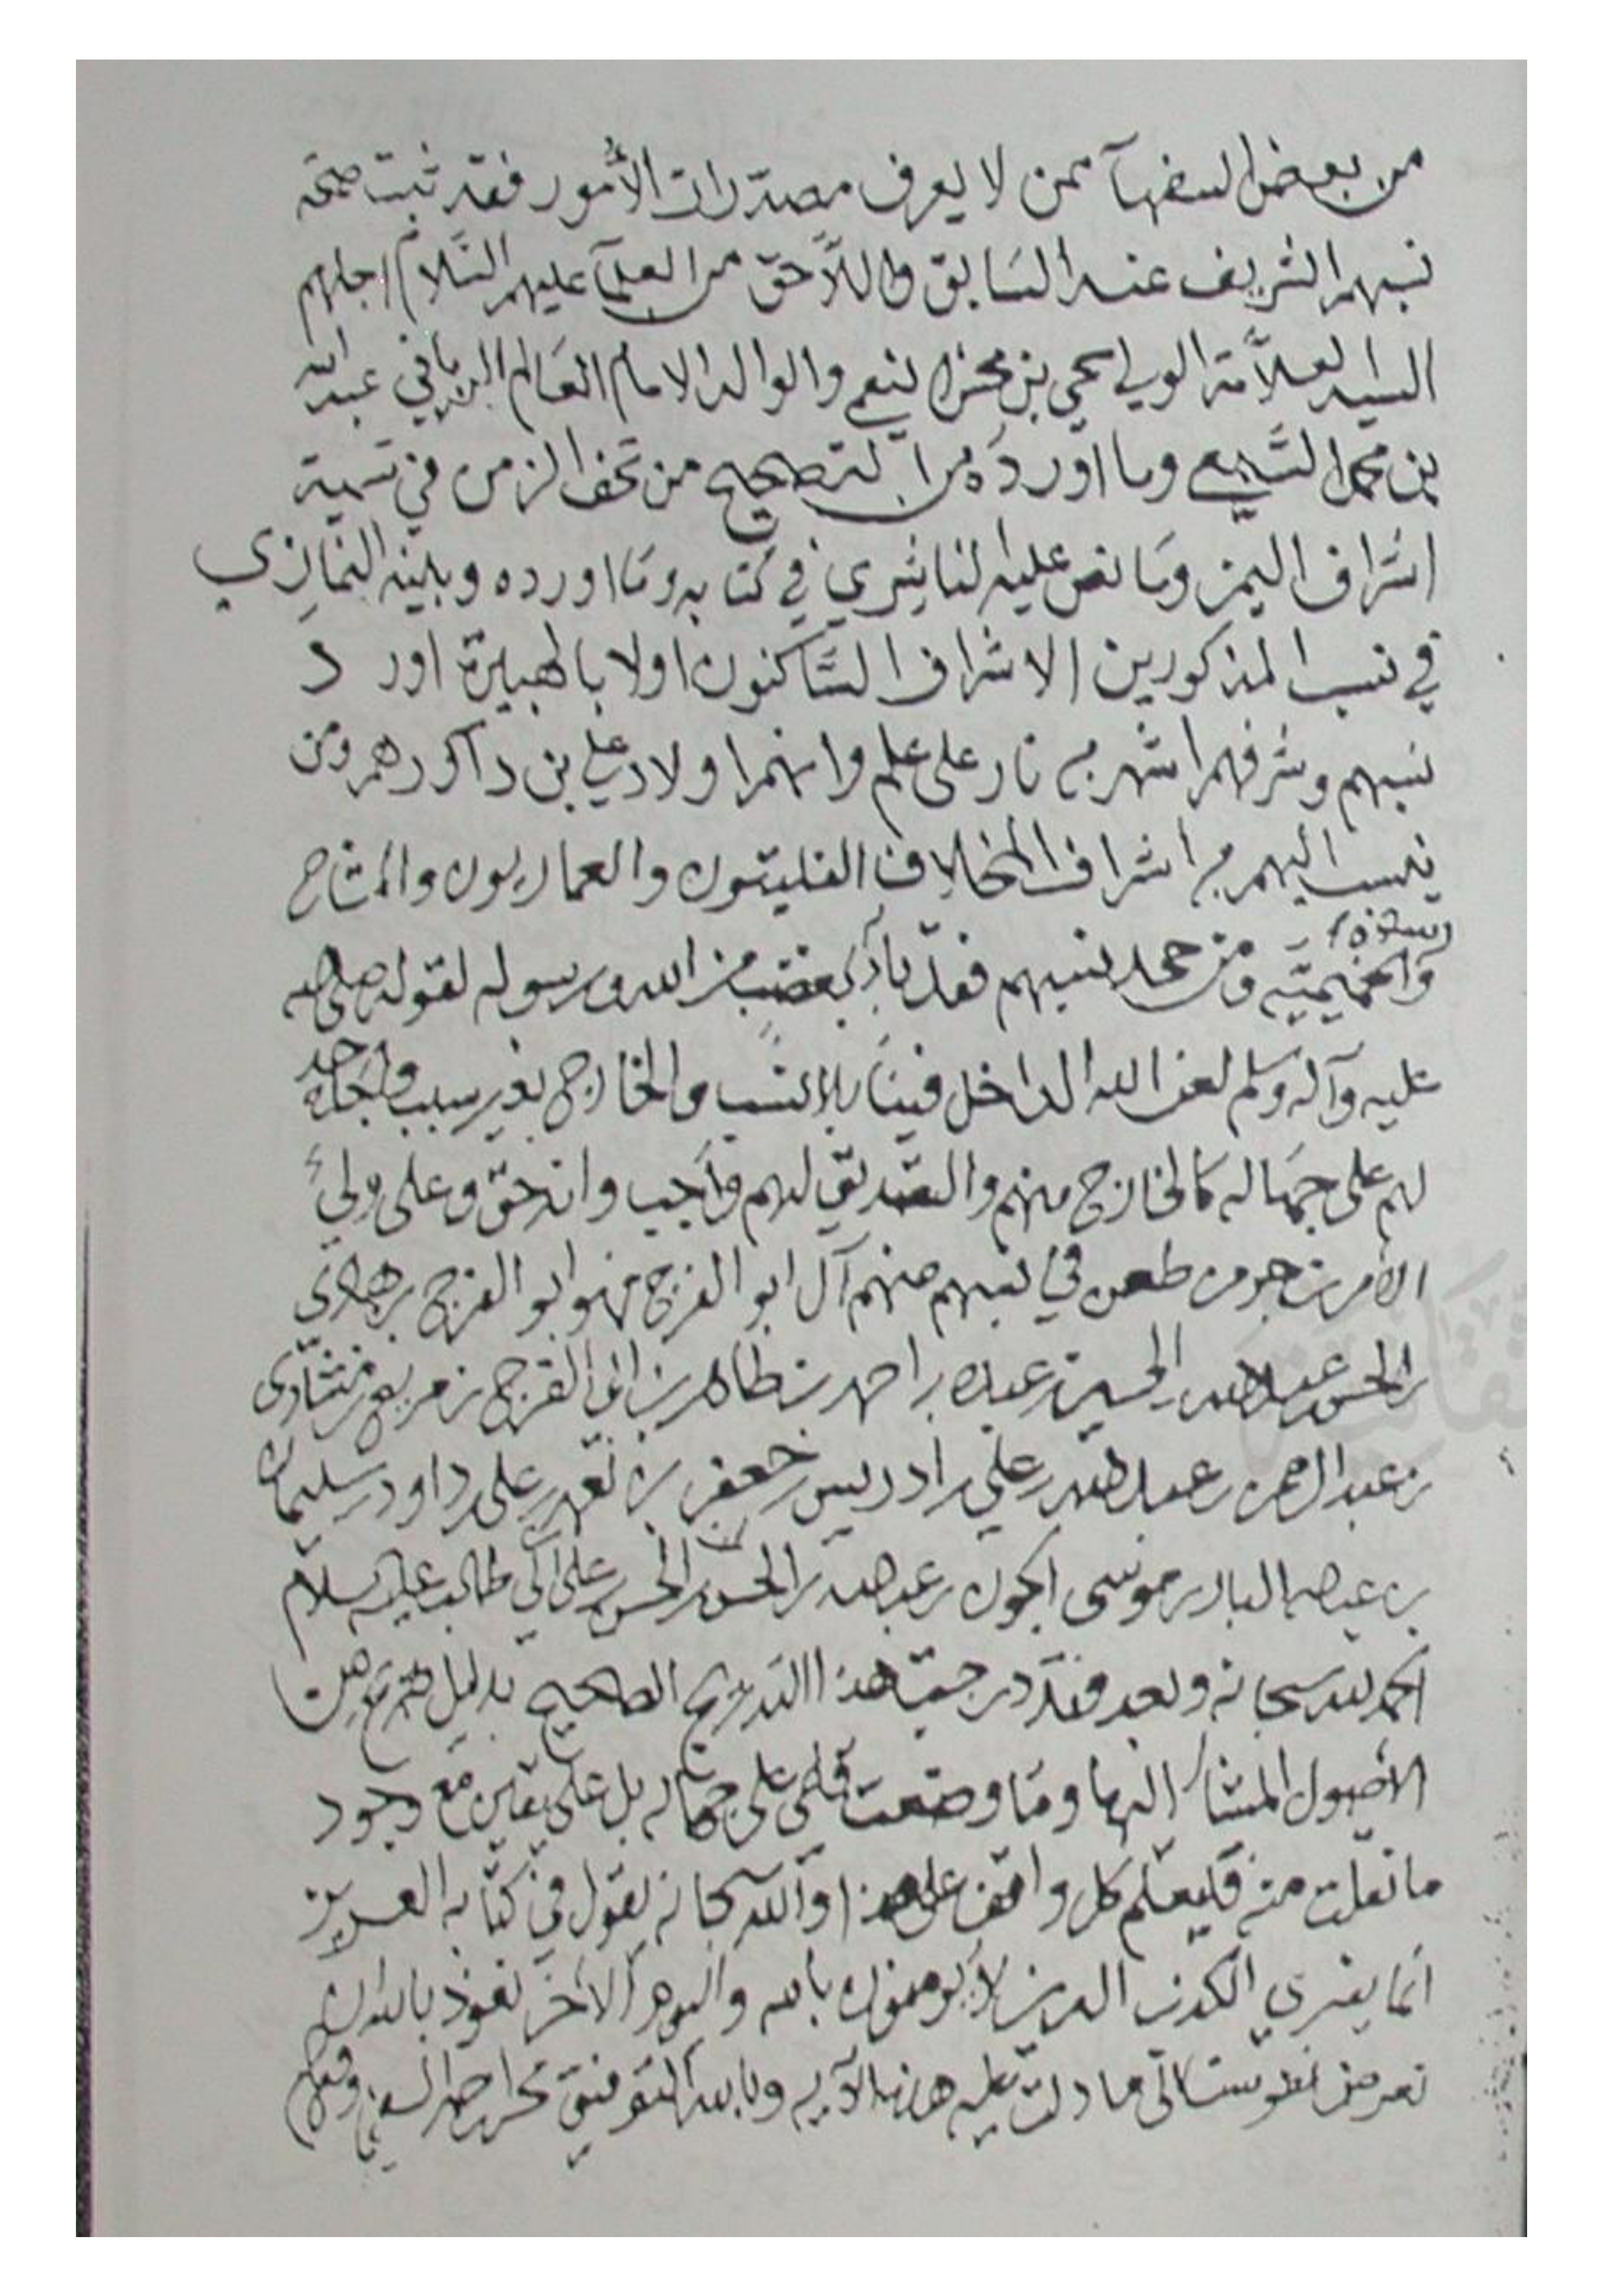 من بعض السفهآ ممن لا يعرف مصدرات الأمور فقد ثبت صحة
نسبهم الشريف عند السابق واللاحق من العلمآ عليهم السلام اجلهم
السيد العلامة الولي يحيى بن محمد النعمي والوالد الامام العالم الرباني عبدالله
بن محمد النعمي وما اورده من التصحيح من تحفة الزمن في تسمية
اشراف اليمن وما نص عليه الناشري في كتابه وما اورده وبينه النمازي
في نسب المذكورين الاشراف الساكنون اولا بالهبيرة اورد
نسبهم وشرفهم اشهر من نار على علم وانهم اولاد علي بن داوود هم ومن
ينسب اليهم من اشراف المخلاف الفليتون والعماريون والمشاح
ومن جحد نسبهم فقد بآء بغضب من الله ورسوله لقوله صلى الله
عليه وآله وسلم لعن الله الداخل فينا بلا نسب والخارج بغير سبب
لهم على جهاله كالخارج منهم والتصديق لهم واجب وانه حق وعلى ولي
الأمر زجر من طعن في نسبهم منهم آل ابو الفرج فهو ابو الفرج بن هادي
بن الحسن بن عبدالله بن الحسين بن عبده بن احمد بن طاهر بن ابي الفرج بن
بن عبدالرحمن بن عبدالله بن علي بن ادريس بن جعفر بن نعمه بن علي بن داود بن سليمان
بن عبدالله البار بن موسى الجون بن عبدالله بن الحسن بن الحسن بن علي ابي طالب عليه سلام
الحمد لله سبحانه وبعد فقد درجت هذا التدريج الصحيح بدليل صريح من
الأصول المشار اليها وما وضعت قلمي على جهاله بل على يقين مع وجود
ما نقلت منه فليعلم كل واقف على هذا والله سبحانه يقول في كتابه العزيز
انما يفتري الكذب الذين لا يومنون بالله واليوم الآخر نعوذ بالله ان
نعرض نفوسنا الى ما دلت عليه هذه الآيه وبالله التوفيق